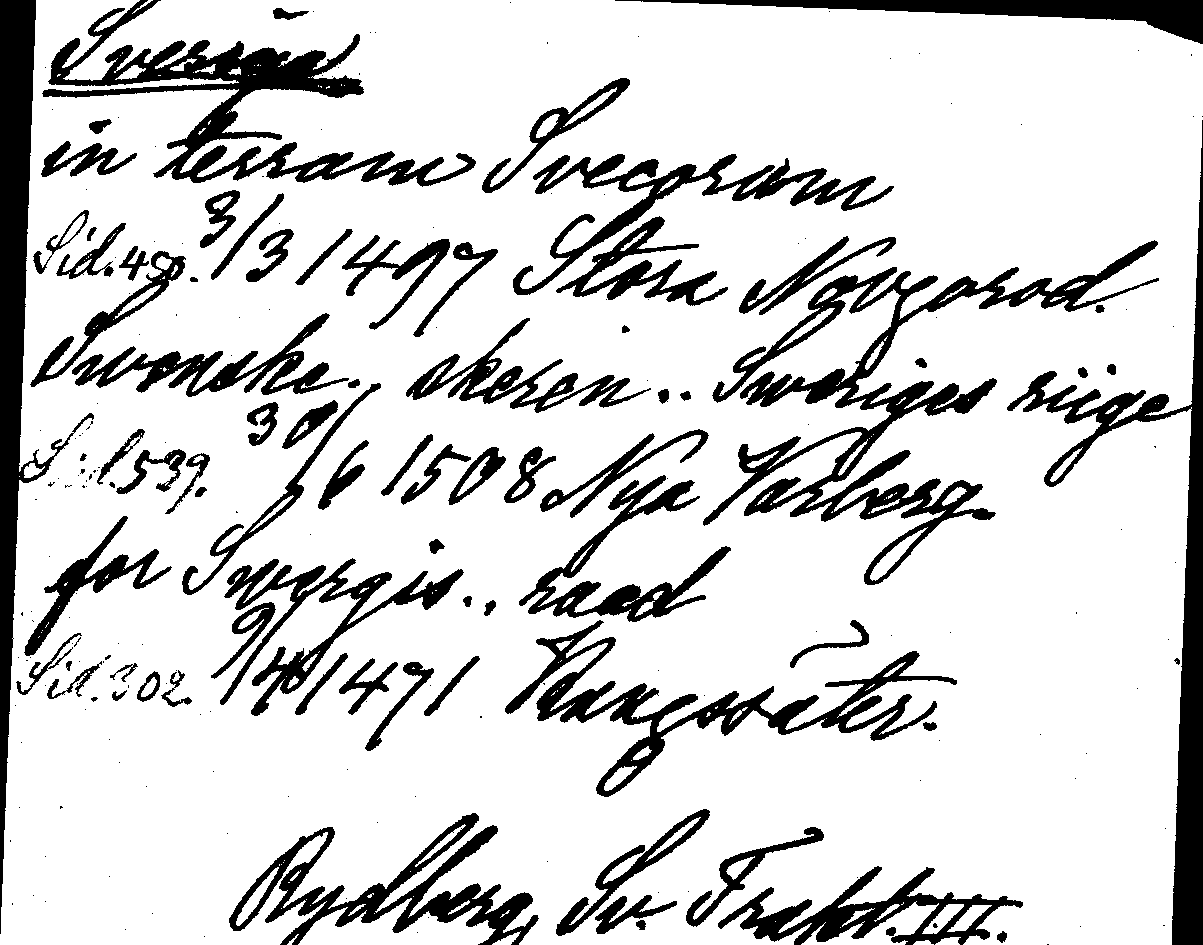 Sverige
in terram Svecorum
Sid. 450. 3/3 1497 Stora Novgorod.
Swenske.. skeren.. Sweriges riige
Sid. 539. 30/6 1508 Nya Varberg.
for Swergis.. raad
Sid. 302. 9/4 1471 Kungssäter.
Rydberg, Sv. Trakt. III.